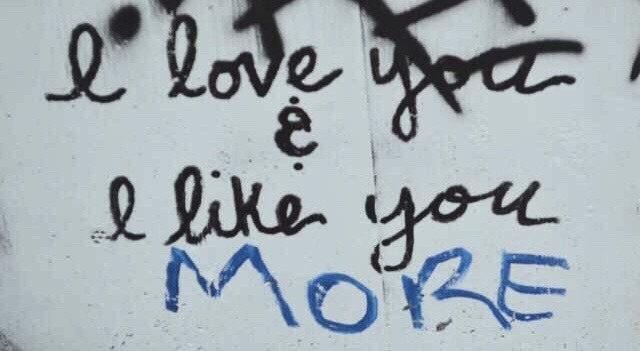 I love you
&
I like you
MORE